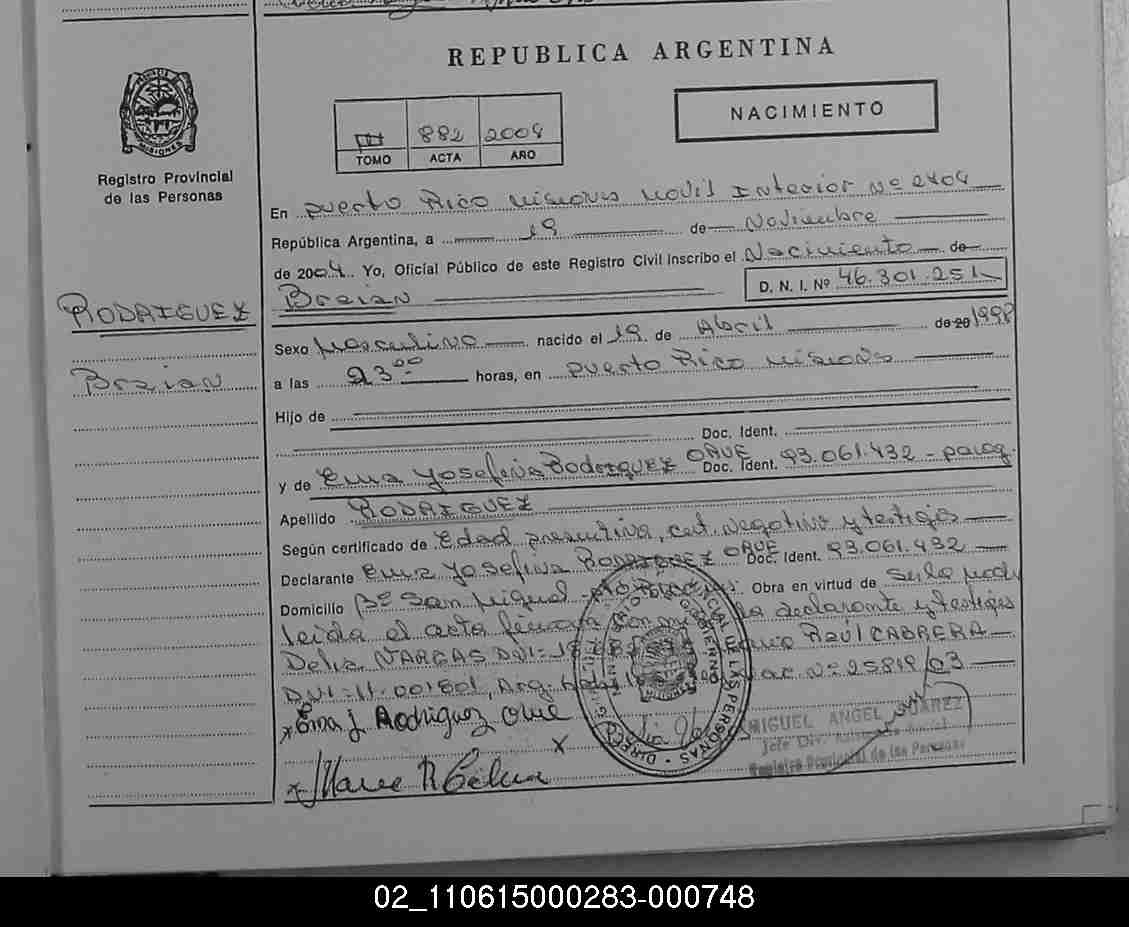 REPUBLICA ARGENTINA
PROVINCIA DE MISIONES
Registro Provincial
de las Personas
III 882 2004
TOMO ACTA AÑO
NACIMIENTO
En Puerto Rico Misiones Movil Interior Nº 2404
República Argentina, a 19 de Noviembre
de 2004. Yo, Oficial Público de este Registro Civil inscribo el Nacimiento de
Breian D. N. I. Nº 46.301.251
RODRIGUEZ
Breian
Sexo Masculino nacido el 19 de Abril de 20 1998
a las 23 00 horas, en Puerto Rico Misiones
Hijo de
Doc. Ident.
y de Ema Yosefina Rodriguez ORUE Doc. Ident. 93.061.432 - parag.
Apellido RODRIGUEZ
Según certificado de Edad presuntiva, cert. negativo y testigos
Declarante Ema Yosefina RODRIGUEZ ORUE Doc. Ident. 93.061.432
Domicilio Bº San Miguel Obra en virtud de
leida el acta firman la declarante y testigos
VARGAS DNI: RAÚL CABRERA
DNI: 11.001801, Arg. Nº 25819/03
x Ema J Rodriguez Orue
x
x
DIRECCION PROVINCIAL DE LAS PERSONAS
GOBIERNO
MIGUEL ANGEL JUAREZ
Jefe Div.
Registro Provincial de las Personas
02_110615000283-000748